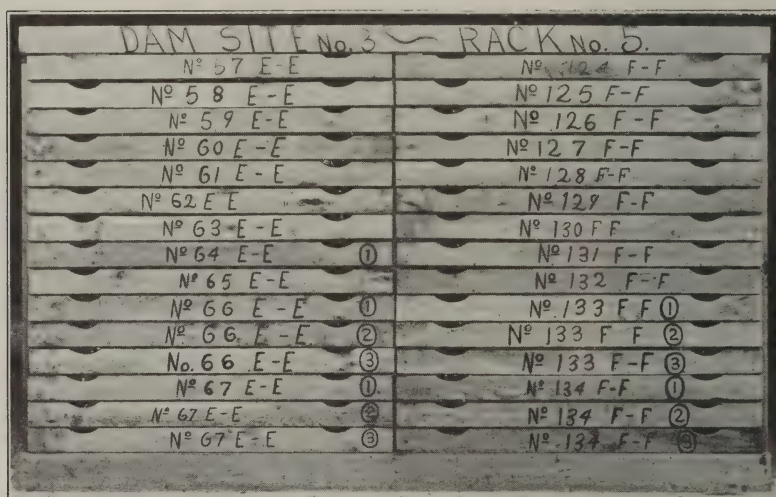 DAM SITE No. 3 ~ RACK No. 5.
Nº 57 E-E
Nº 58 E-E
Nº 59 E-E
Nº 60 E-E
Nº 61 E-E
Nº 62 E E
Nº 63 E-E
Nº 64 E-E ①
Nº 65 E-E
Nº 66 E-E ①
Nº 66 E-E ②
No. 66 E-E ③
Nº 67 E-E ①
Nº 67 E-E ②
Nº 67 E-E ③
Nº 124 F-F
Nº 125 F-F
Nº 126 F-F
Nº 127 F-F
Nº 128 F-F
Nº 129 F-F
Nº 130 F F
Nº 131 F-F
Nº 132 F-F
Nº 133 F F ①
Nº 133 F F ②
Nº 133 F-F ③
Nº 134 F-F ①
Nº 134 F-F ②
Nº 134 F-F ③